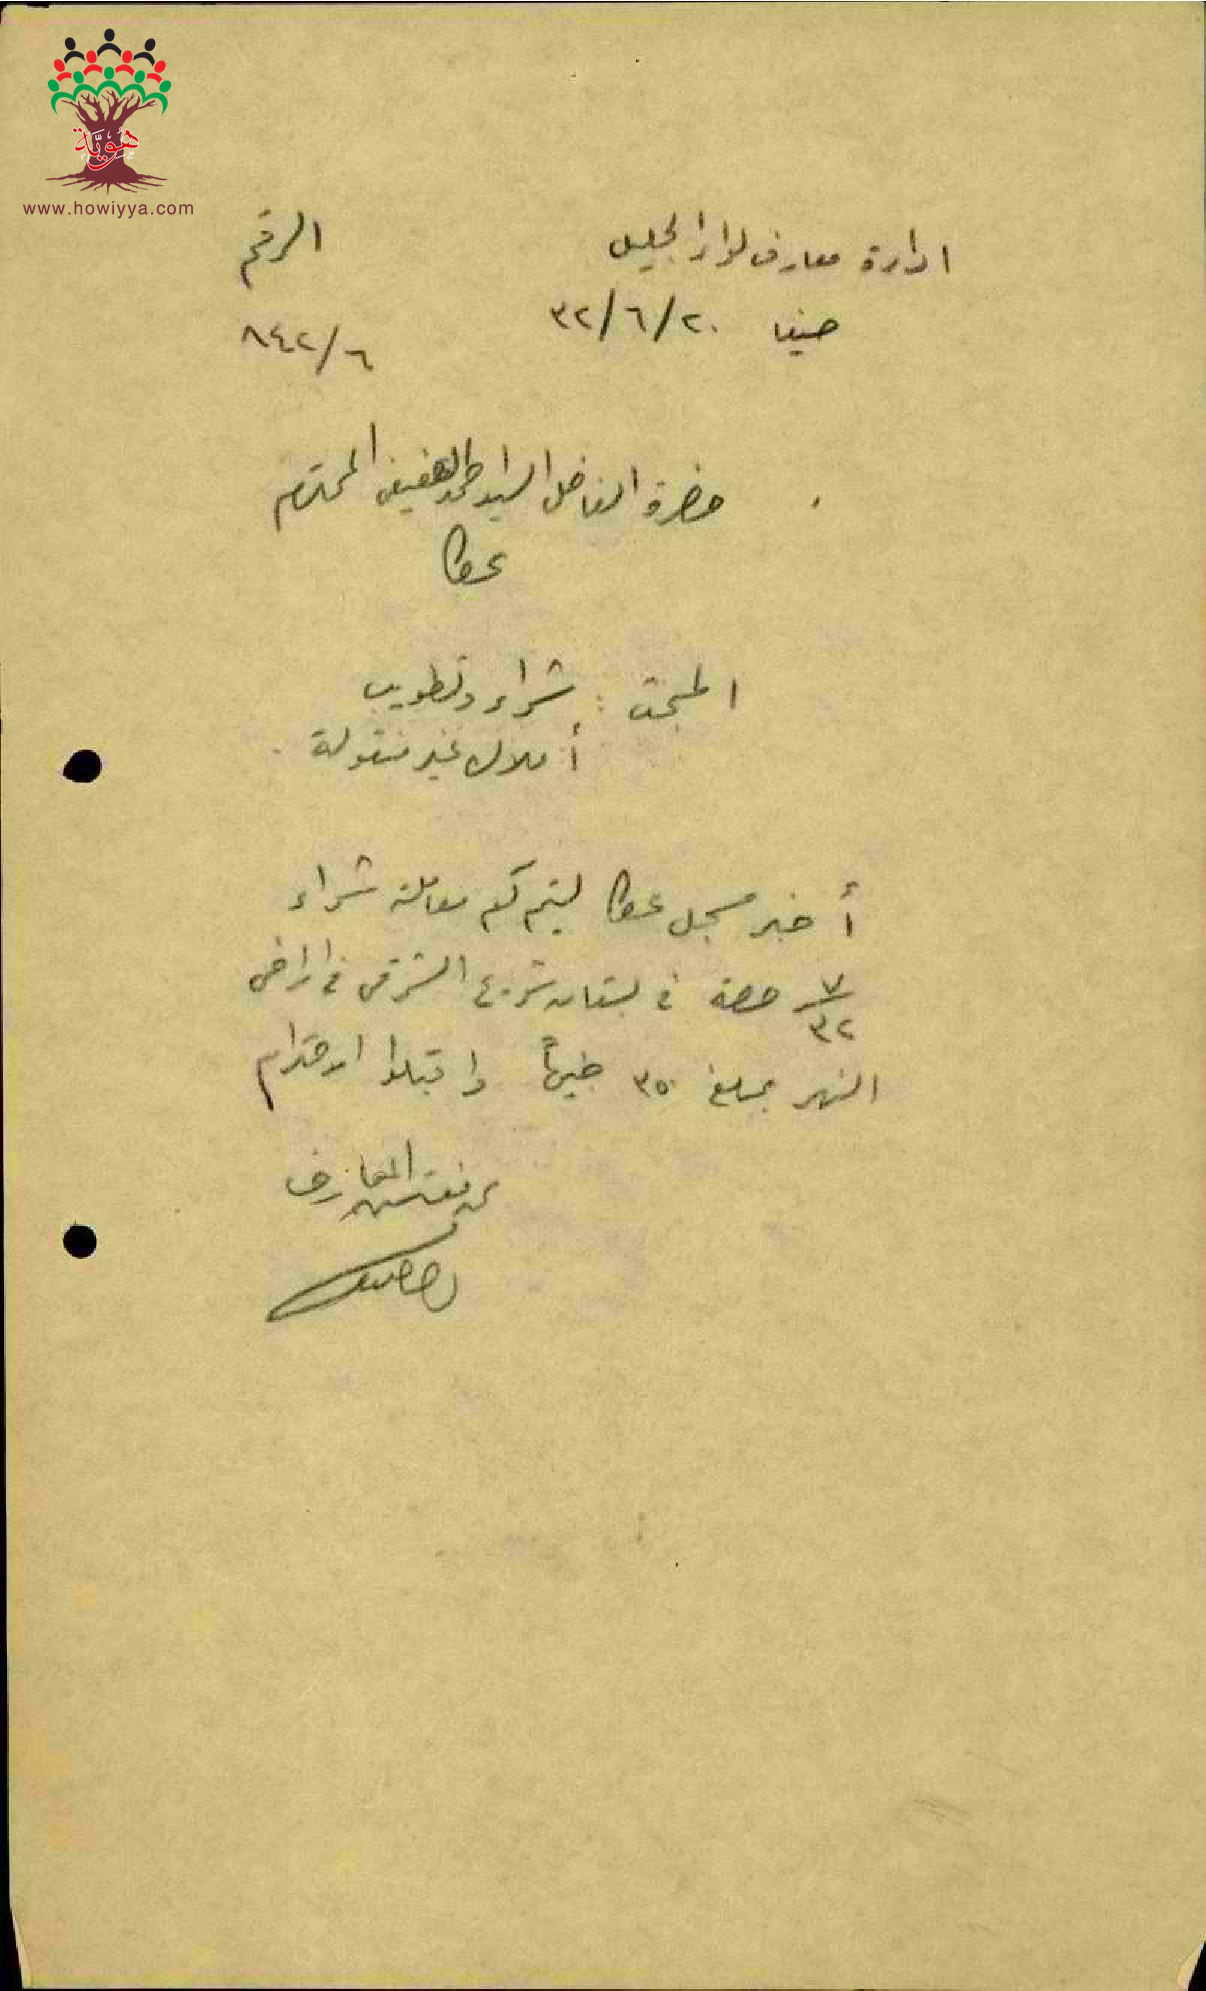 هوية
www.howiyya.com
ادارة معارف لواء الجليل
الرقم
حيفا ٢٠/٦/٣٢
٨٤٢/٦
حضرة الفاضل السيد المحترم
عكا
المبحث : شراء وتطويب
أملاك غير منقولة .
أخبر مسجل عكا ليتم لكم معاملة شراء
٧/٣٢ حصة في بستان الشرقي في اراضي
النهر بمبلغ ٣٥٠ جنيهاً واقبلوا الاحترام
عن مفتش المعارف